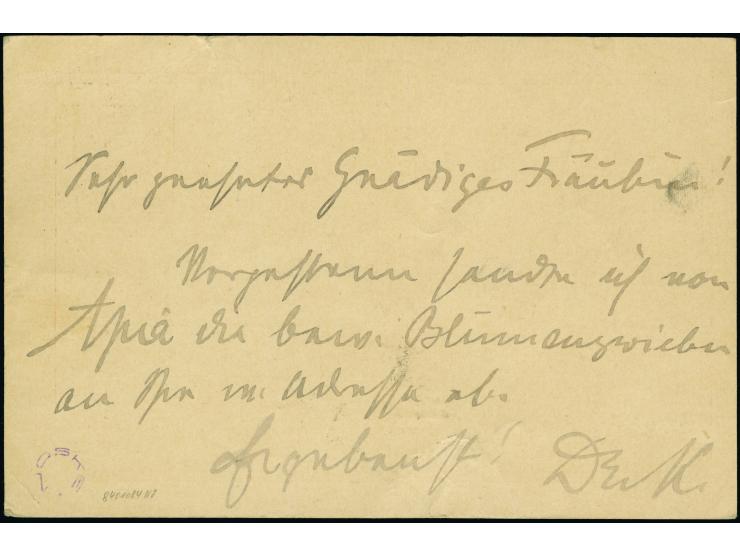 Sehr geehrtes Gnädiges Fräulein!
Vorgestern sandte ich von
Apia die bew. Blumenzwiebeln
an Ihre w. Adresse ab.
Ergebenst!